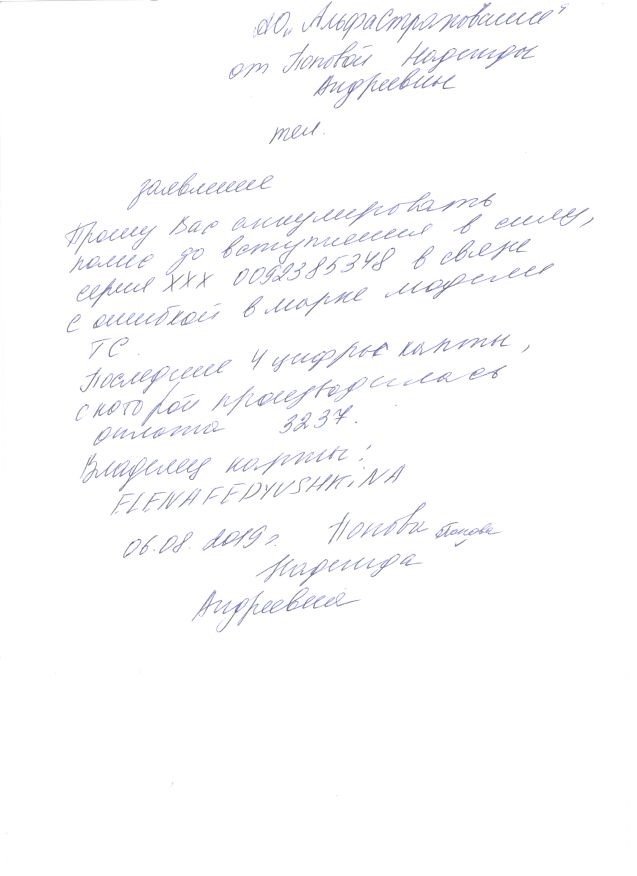 АО „АльфаСтрахование"
от Поповой Надежды
Андреевны
тел.
заявление
Прошу Вас аннулировать
полис до вступления в силу,
серия XXX 0092385348 в связи
с ошибкой в марке модели
ТС.
Последние 4 цифры карты,
с которой производилась
оплата 3237.
Владелец карты:
ELENA FEDYUSHKiNA
06.08.2019г. Попова Попова
Надежда
Андреевна